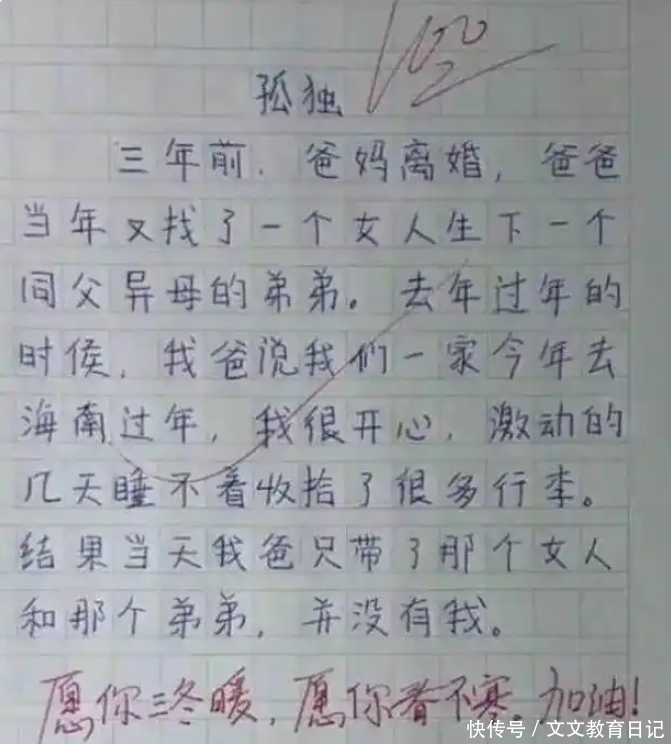 100
孤独
三年前，爸妈离婚，爸爸
当年又找了一个女人生下一个
同父异母的弟弟。去年过年的
时候，我爸说我们一家今年去
海南过年，我很开心，激动的
几天睡不着收拾了很多行李。
结果当天我爸只带了那个女人
和那个弟弟，并没有我。
愿你三冬暖，愿你春不寒，加油！
快传号／文文教育日记